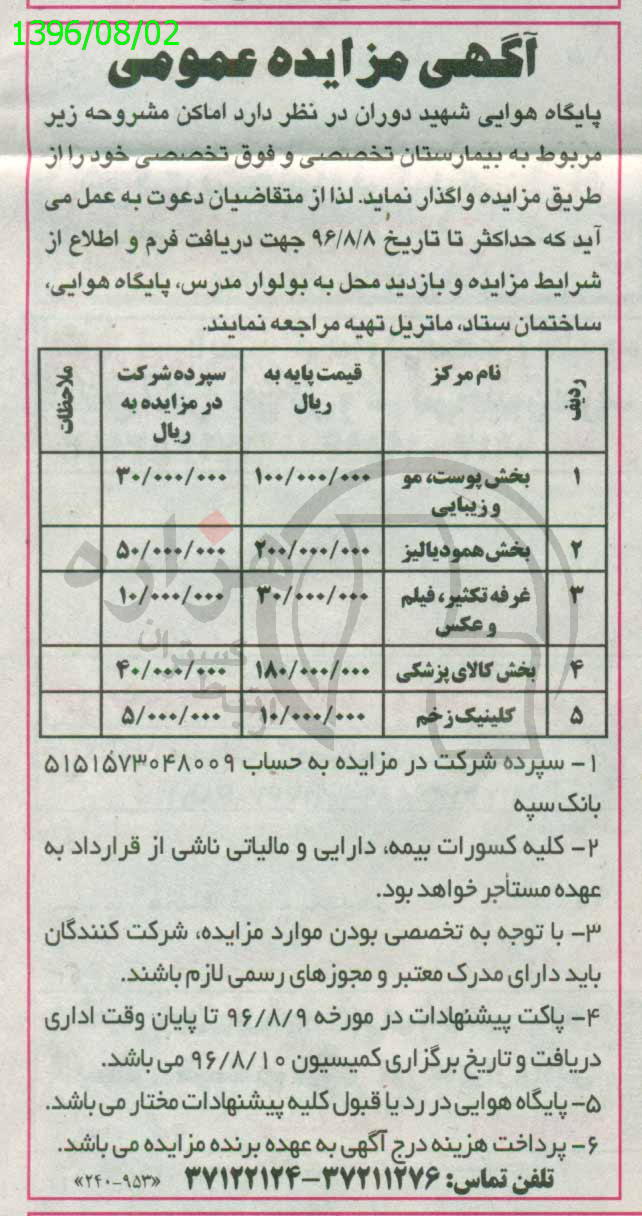 1396/08/02
آگهی مزایده عمومی
پایگاه هوایی شهید دوران در نظر دارد اماکن مشروحه زیر
مربوط به بیمارستان تخصصی و فوق تخصصی خود را از
طریق مزایده واگذار نماید. لذا از متقاضیان دعوت به عمل می
آید که حداکثر تا تاریخ ۹۶/۸/۸ جهت دریافت فرم و اطلاع از
شرایط مزایده و بازدید محل به بولوار مدرس، پایگاه هوایی،
ساختمان ستاد، ماتریل تهیه مراجعه نمایند.
ردیف نام مرکز قیمت پایه به ریال سپرده شرکت در مزایده به ریال ملاحظات
۱ بخش پوست، مو و زیبایی ۱۰۰/۰۰۰/۰۰۰ ۳۰/۰۰۰/۰۰۰
۲ بخش همودیالیز ۲۰۰/۰۰۰/۰۰۰ ۵۰/۰۰۰/۰۰۰
۳ غرفه تکثیر، فیلم و عکس ۳۰/۰۰۰/۰۰۰ ۱۰/۰۰۰/۰۰۰
۴ بخش کالای پزشکی ۱۸۰/۰۰۰/۰۰۰ ۴۰/۰۰۰/۰۰۰
۵ کلینیک زخم ۱۰/۰۰۰/۰۰۰ ۵/۰۰۰/۰۰۰
هزاره
گستران
ارتباط
۱- سپرده شرکت در مزایده به حساب ۵۱۵۱۵۷۳۰۴۸۰۰۹
بانک سپه
۲- کلیه کسورات بیمه، دارایی و مالیاتی ناشی از قرارداد به
عهده مستأجر خواهد بود.
۳- با توجه به تخصصی بودن موارد مزایده، شرکت کنندگان
باید دارای مدرک معتبر و مجوزهای رسمی لازم باشند.
۴- پاکت پیشنهادات در مورخه ۹۶/۸/۹ تا پایان وقت اداری
دریافت و تاریخ برگزاری کمیسیون ۹۶/۸/۱۰ می باشد.
۵- پایگاه هوایی در رد یا قبول کلیه پیشنهادات مختار می باشد.
۶- پرداخت هزینه درج آگهی به عهده برنده مزایده می باشد.
تلفن تماس: ۳۷۲۱۱۲۷۶-۳۷۱۲۲۱۲۴ «۲۴۰-۹۵۳»